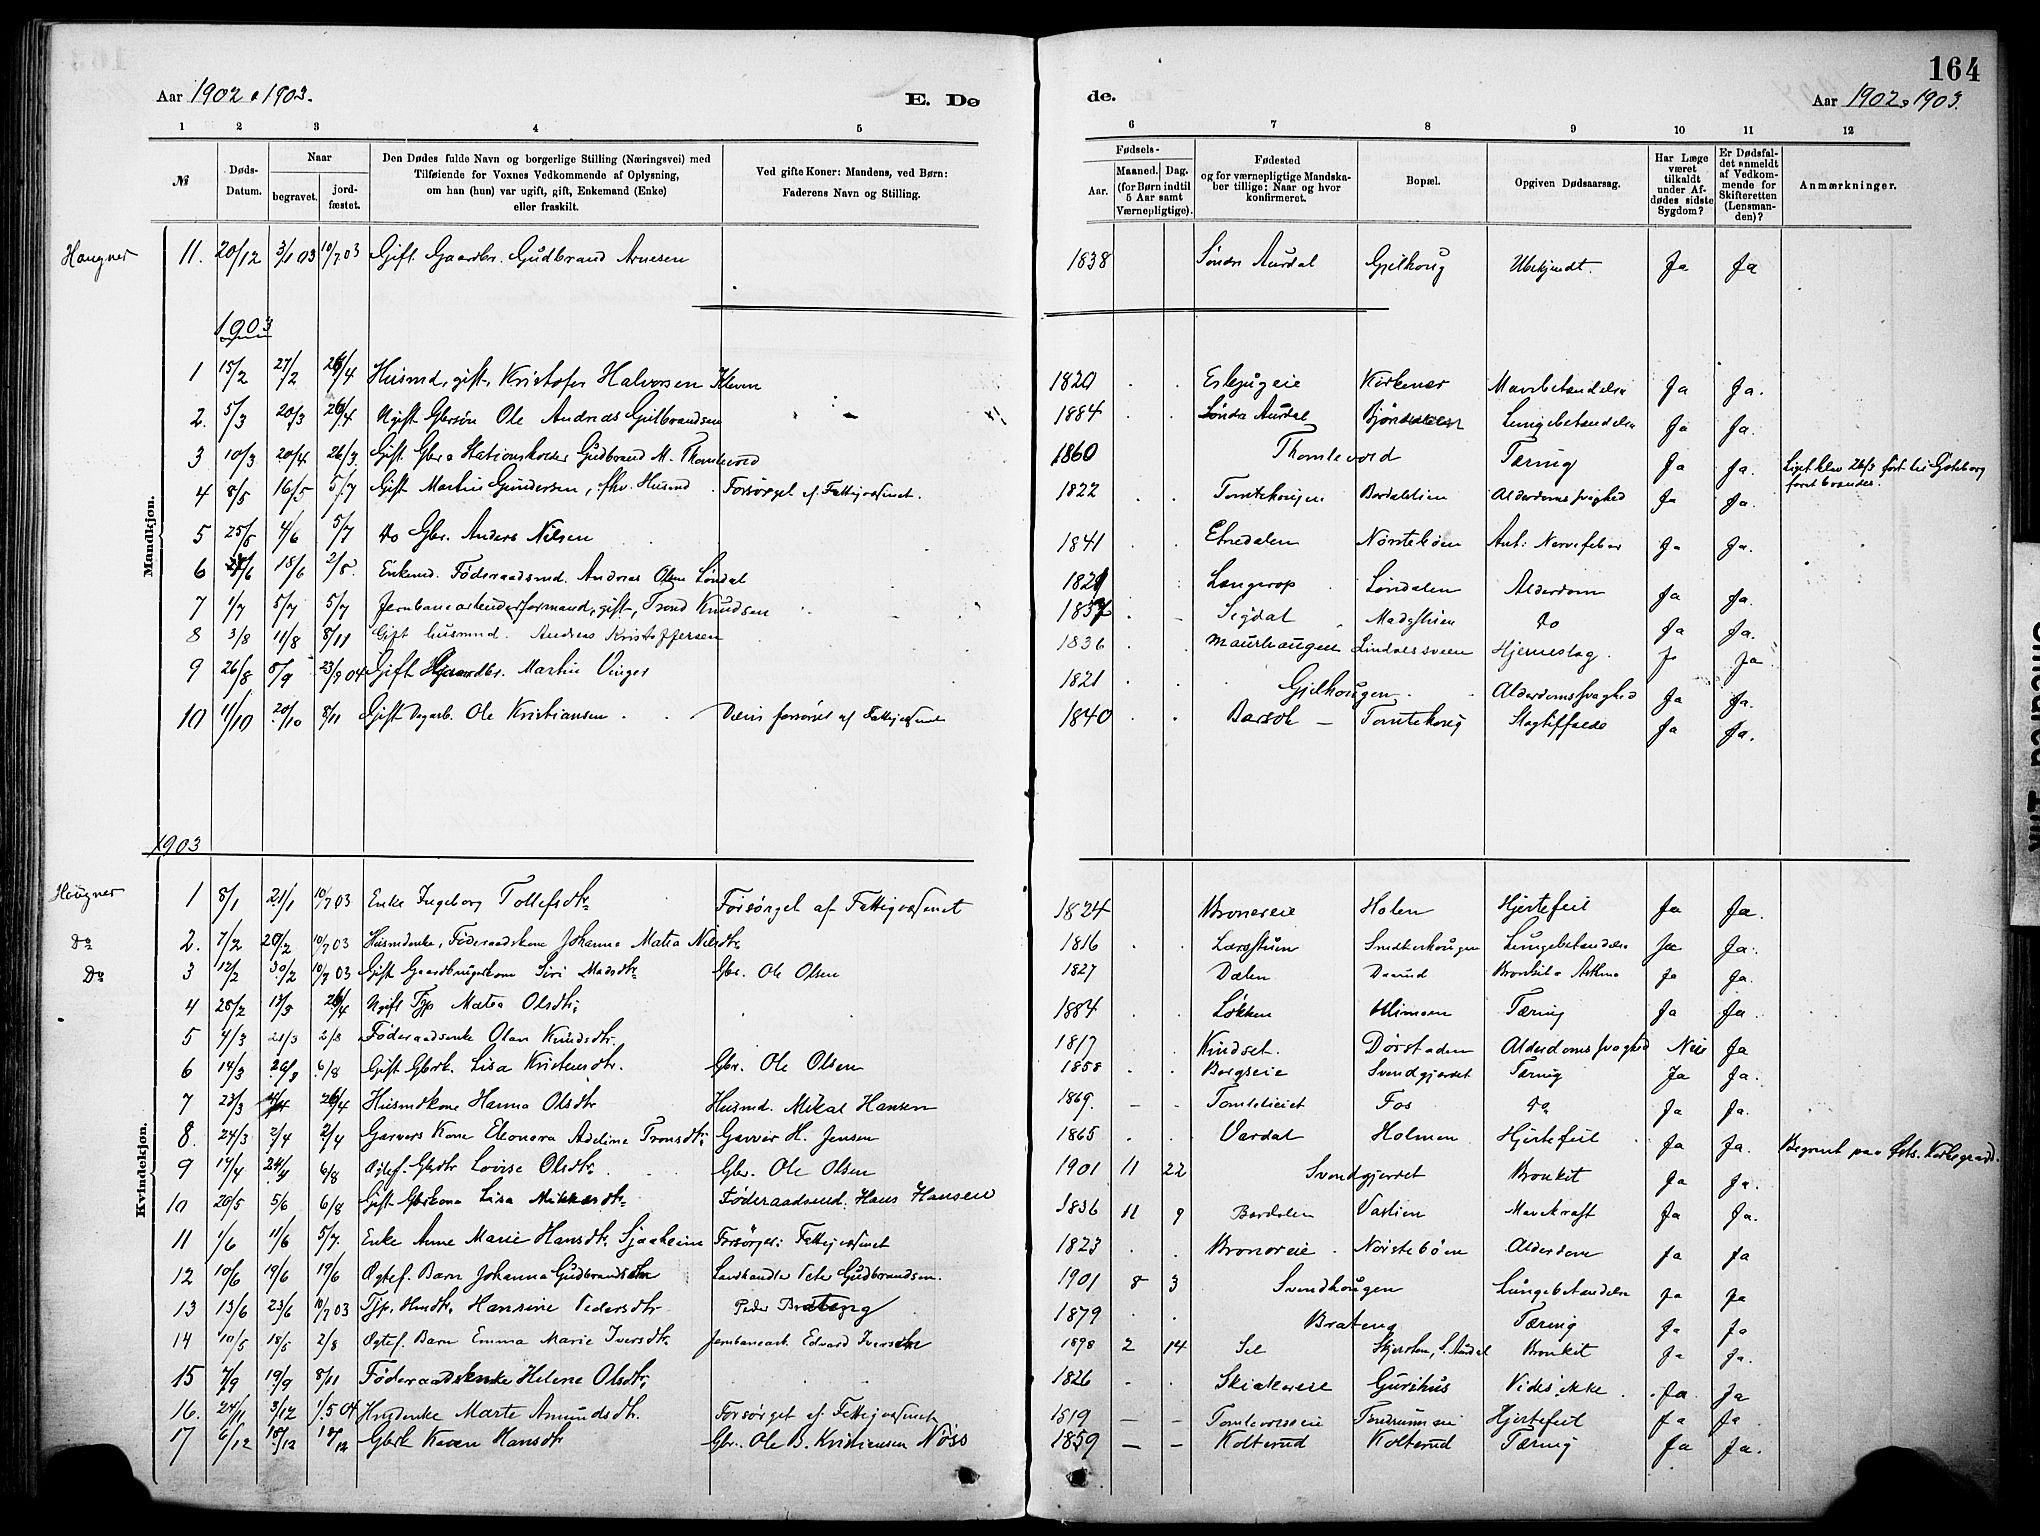 164
Aar 1902 & 1903. E. Dø de. Aar 1902 & 1903.
1 2 3 4 5 6 7 8 9 10 11 12
№ Døds-Datum. Naar begravet. jord-fæstet. Den Dødes fulde Navn og borgerlige Stilling (Næringsvei) med Tilføiende for Voxnes Vedkommende af Oplysning, om han (hun) var ugift, gift, Enkemand (Enke) eller fraskilt. Ved gifte Koner: Mandens, ved Børn: Faderens Navn og Stilling. Fødsels- Aar. Maaned. Dag. (for Børn indtil 5 Aar samt Værnepligtige). Fødested og for værnepligtige Mandskaber tillige: Naar og hvor konfirmeret. Bopæl. Opgiven Dødsaarsag. Har Læge været tilkaldt under Afdødes sidste Sygdom? Er Dødsfaldet anmeldt af Vedkommende for Skifteretten (Lensmanden)? Anmærkninger.
Mandkjøn.
Haugner 11. 20/12 3/1 03 10/7 03 Gift Gaardbr. Gudbrand Arnesen 1838 Søndr Aurdal Gjelhoug Ubekjendt. Ja Ja
1903
1 15/2 27/2 26/4 Husmd, gift, Kristofer Halvorsen Kleven 1820 Kirkener Mavebetændelse Ja Ja.
2. 5/3 20/3 26/4 Ugift Gbrsøn Ole Andreas Gulbrandsen 1884 Søndre Aurdal Lungebetændelse Ja Ja.
3 10/3 20/4 26/3 Gift Gbr & Stationsholder Gudbrand M. Thomlevold 1860 Thomlevold Tæring Ja Ja. Liget blev 26/3 ført til Göteborg foret brændes.
4 8/5 16/5 5/7 Gift Martin Gundersen, fhv. Husmd Forsørget af Fattigvæsenet. 1822 Tomtehougen Bordalslien Alderdomssvaghed Ja Ja.
5 25/5 4/6 5/7 Do Gbr. Anders Nilsen 1841 Etnedalen Nørstebøen Ant: Nervefeber Ja Ja.
6 18/6 2/8. Enkemd. Føderaadsmd. Andreas Olsen Løndal 1821 Langerop Løndalen Alderdom Ja Ja.
7 1/7 5/7 5/7 Jernbanearbeiderformand, gift, Trond Knudsen 1857 Sigdal Madsstuen Do Ja Ja.
8 3/8 11/8 8/11 Gift husmnd. Andreas Kristoffersen 1836 Maurhaugen Lindalssveen Hjerneslag. Ja Ja
9 26/8 5/9 23/9 04 Gift Gaardbr. Martin Vinger 1821 Gjelhougen Alderdomssvaghed Ja Ja.
10 11/10 20/10 8/11 Gift Dagarb. Ole Kristiansen Delvis forsørget af Fattigvæsenet 1840 Tomtehoug Slagtilfælde Ja Ja.
1903
Kvindekjøn.
Haugner 1 8/1 21/1 10/7 03 Enke Ingeborg Tollefsdtr Forsørget af Fattigvæsenet 1824 Bronereie Holen Hjertefeil Ja Ja.
Do 2. 7/2 20/2 10/7 03 Husmdenke, Føderaadskone Johanne Matea Nilsdtr 1816 Larsstuen Smedterhougen Lungebetændelse Ja Ja.
Do 3 12/2 20/2 10/7 03 Gift Gaardbrugerkone Siri Madsdtr Gbr. Ole Olsen 1827 Dælen Daarud Bronkit & Asthma Ja Ja.
4 28/2 13/3 26/4 Ugift Tjp Matea Olsdtr. 1884 Løkken Tæring Ja Ja.
5 4/3 21/3 2/8 Føderaadsenke Olea Knudsdtr. 1817 Kindset. Dørstaden Alderdomssvaghed Nei Ja
6 14/3 20/3 6/8 Gift Gbrk. Lisa Kristensdtr. Gbr. Ole Olsen 1858 Borgseie Svendgjerdet Tæring Ja Ja.
7 23/3 26/4 Husmdkone Hanna Olsdtr Husmd. Mikal Hansen 1869. Tomleieiet Fos Do Ja Ja.
8. 24/3 2/4 2/4 Garvers Kone Eleonora Adeline Tronsdtr. Garver H. Jensen 1865 Vardal Holmen Hjertefeil Ja Ja. Begravet paa Østs. Kirkegaard.
9 17/4 24/4 6/8 Ægtef. Gbrdtr Lovise Olsdtr. Gbr. Ole Olsen 1901 11 22 Svendgjerdet Bronkit Ja Ja.
10 20/5 5/6 6/8 Gift Gbrkone Lisa Mikkelsdtr. Føderaadsmd. Hans Hansen 1836 11 9 Bordalen Vaslien Mavekræft Ja Ja.
11 1/6 11/6 5/7 Enke Anne Marie Hansdtr. Sjaaheim Forsørges i Fattigvæsenet 1823 Bronereie Nørstebøen Alderdom Ja Ja
12 10/6 19/6 19/6 Ægtef. Barn Johanna Gudbrandsdtr Landhandler Peter Gudbrandsen. 1901 8 3 Svendhougen Lungebetændelse Ja Ja
13 13/6 23/6 10/7 03 Tjp. Hmdtr. Hansine Pedersdtr. Peder Brateng 1879 Brateng Tæring Ja Ja
14 10/5 18/5 2/8 Ægtef. Barn Emma Marie Iversdtr. Jernbanearb. Edvard Iversen 1898 2 14 Sel S. Aurdal Bronkit Ja Ja.
15 7/9 19/9 8/11 Føderaadsenke Helene Olsdtr. 1826 Skiakereie Gurihus Vides ikke. Ja. Ja
16. 24/11 3/12 1/5 04 Husdenke Marte Amundsdtr. Forsørget af Fattigvæsenet 1819 Tomlevoldseie Hjertefeil Ja Ja.
17 6/12 18/12 18/12 Gbrk Karen Hansdtr Gbr. Ole B. Kristiansen Nøss 1859 Kolterud Kolterud Tæring Ja Ja.